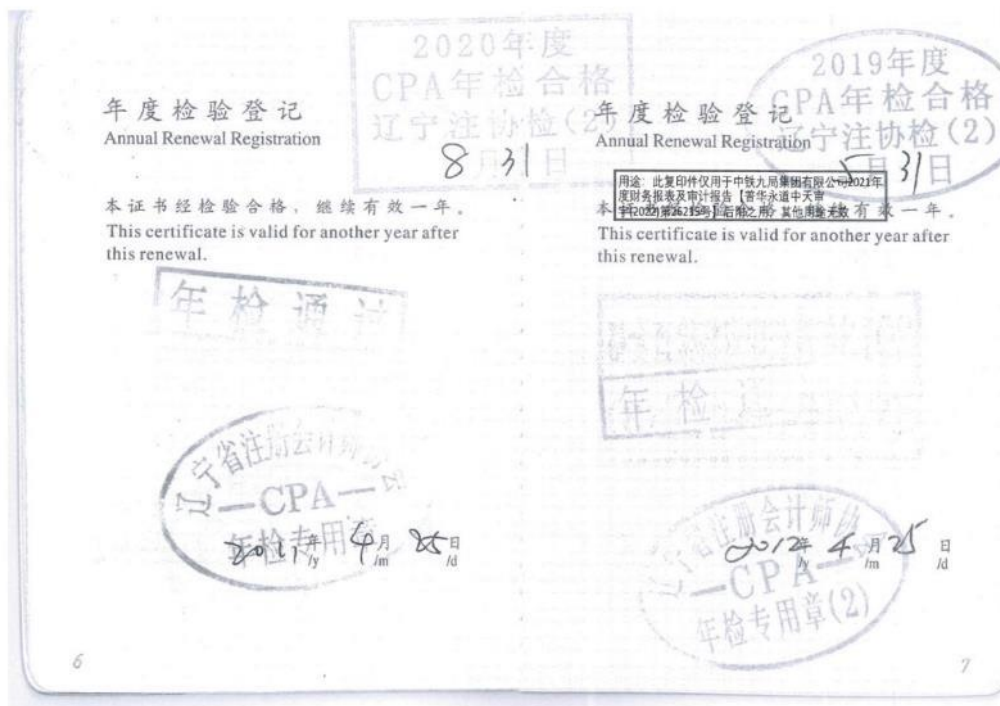 2020年度
CPA年检合格
辽宁注协检(2)
8月31日
年度检验登记
Annual Renewal Registration
本证书经检验合格，继续有效一年。
This certificate is valid for another year after
this renewal.
年检通过
辽宁省注册会计师协会
—CPA—
年检专用章
2011年4月25日
/y /m /d
6
2019年度
CPA年检合格
辽宁注协检(2)
5月31日
年度检验登记
Annual Renewal Registration
用途：此复印件仅用于中铁九局集团有限公司2021年
度财务报表及审计报告【普华永道中天审
字(2022)第26215号】后附之用，其他用途无效
本 有效一年。
This certificate is valid for another year after
this renewal.
年检
辽宁省注册会计师协会
—CPA—
年检专用章(2)
2012年4月25日
/y /m /d
7